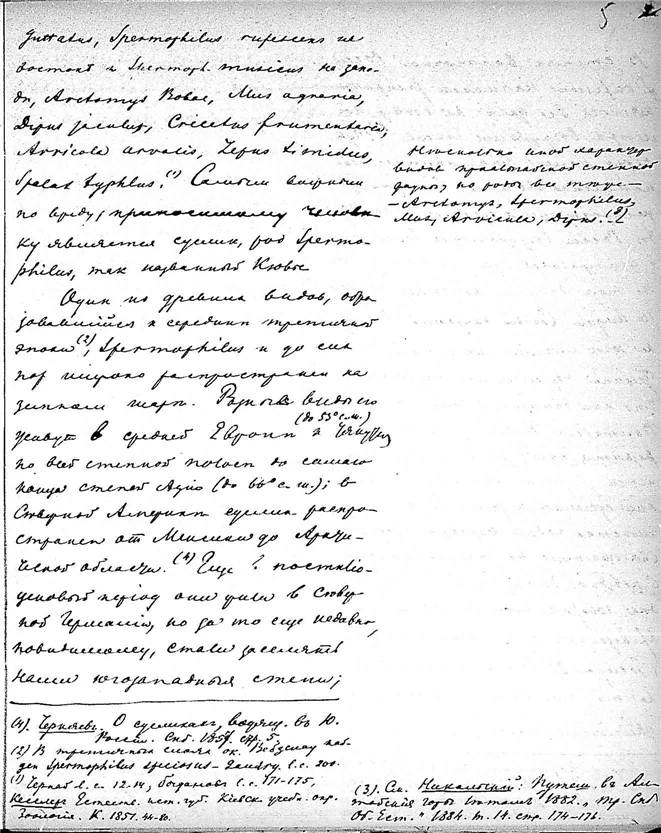 5
guttatus, Spermophilus rufescens на
востокѣ и Spermoph. musicus на запа-
дѣ, Arctomys Bobac, Mus agraria,
Dipus jaculus, Cricetus frumentarius,
Arvicola arvalis, Lepus timidus,
Spalax typhlus. (1) Самымъ
по вреду, приносимому человѣ-
ку является сусликъ, родъ Spermo-
philus, так называемый
Одинъ из древнихъ видовъ, обра-
зовавшійся в серединѣ третичной
эпохи (2), Spermophilus и до сихъ
пор широко распространенъ на
земномъ шарѣ. Разные виды его
(до 55° с. ш.)
живутъ в средней Европѣ и
по всей степной полосѣ до самаго
конца степей Азіи (до 66° с. ш.); в
Сѣверной Америкѣ суслик распро-
страненъ от Мексики до Аркти-
ческой области. (4) Еще ? постплио-
ценовый періодъ они жили в Сѣвер-
ной Германіи, но за то еще недавно,
повидимому, стали заселять
наши югозападныя степи;
Нѣсколько иной характеръ
видов степной
фауны, но роды все тѣ же
– Arctomys, Spermophilus,
Mus, Arvicola, Dipus. (3)
(4). Черняевъ. О сусликахъ, водящ. въ Ю.
Россіи. Спб. 1857. стр. 5.
(2) В третичныхъ слояхъ ок. най-
ден Spermophilus speciosus – Zaudry. l. c. 200.
(1) Чернай l. c. 12-14, Богдановъ l. c. 171-175,
Кесслеръ Естеств. ист. губ. Кіевск. учебн. окр.
Зоологія. К. 1851. 44-80.
(3). См. Никольскій: Путеш. въ Ал-
тайскія горы лѣтомъ 1882. „Тр. Спб
Об. Ест.“ 1884. т. 14. стр. 174–176.